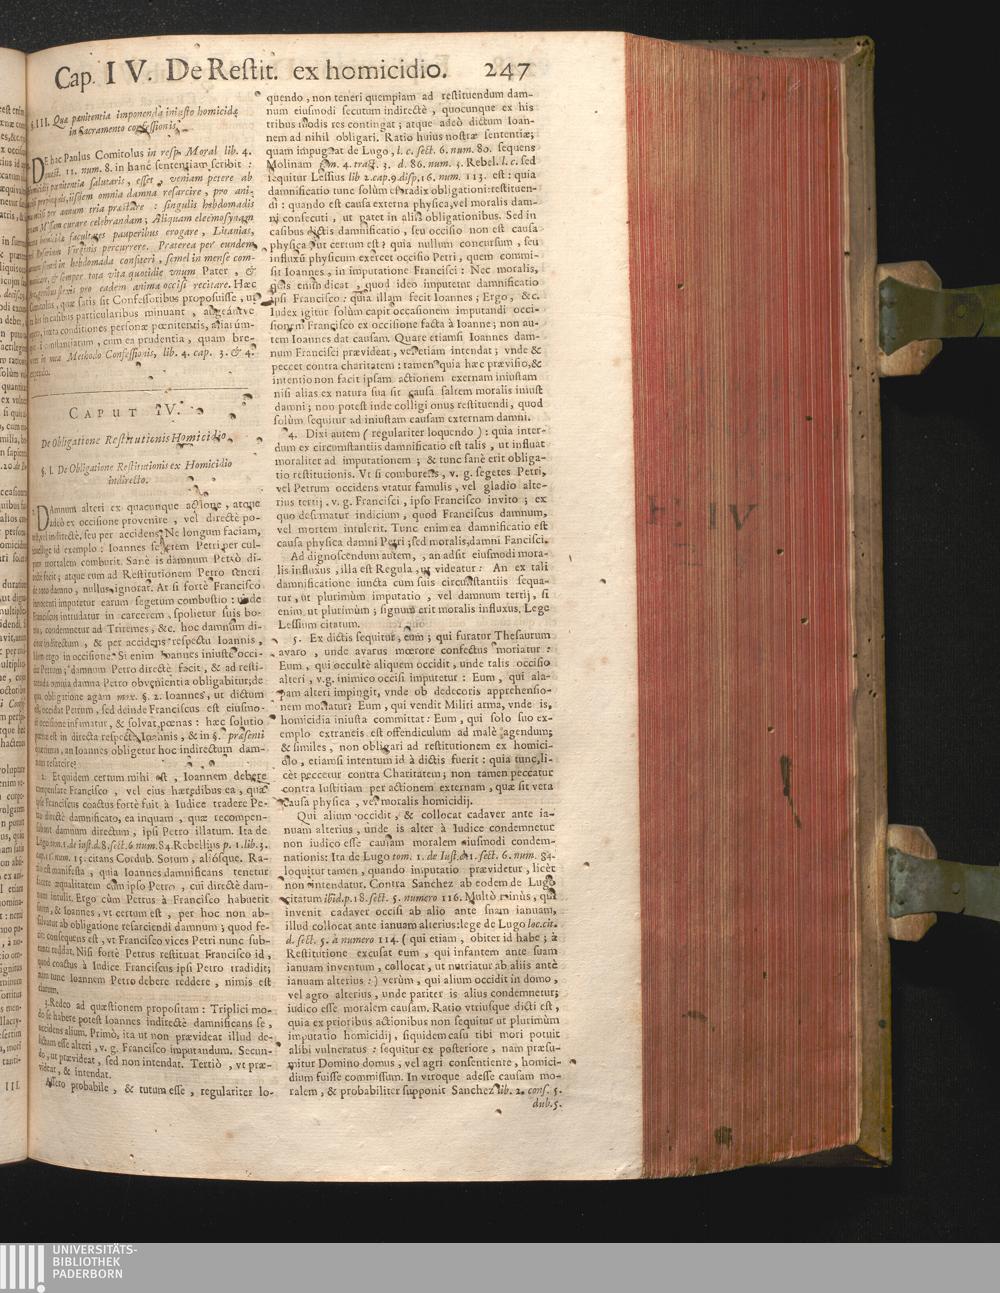 Cap. IV. De Restit. ex homicidio. 247
§. III. Quæ pœnitentia imponenda iniusto homicidæ
in Sacramento confessionis.
DE hac Paulus Comitolus in resp. Moral lib. 4.
quæst. 11. num. 8. in hanc sententiam scribit:
pœnitentia salutaris, esset, veniam petere ab
iisdem omnia damna resarcire, pro ani-
per annum tria præstare: singulis hebdomadis
Missam curare celebrandam; Aliquam eleemosynam
facultates pauperibus erogare, Litanias,
Rosarium Virginis percurrere. Præterea per eundem
in hebdomada confiteri, semel in mense com-
& semper tota vita quotidie vnum Pater, &
pro eadem anima occisi recitare. Hæc
Comitolus, quæ satis sit Confessoribus proposuisse, ut
in his casibus particularibus minuant, augeantve
iuxta conditiones personæ pœnitentis, aliarum-
que circumstantiarum, cum ea prudentia, quam bre-
in mea Methodo Confessionis, lib. 4. cap. 3. & 4.
CAPUT IV.
De Obligatione Restitutionis Homicidio.
§. I. De Obligatione Restitutionis ex Homicidio
indirecto.
DAmnum alteri ex quacunque actione, atque
adeò ex occisione provenire, vel directè po-
test, vel indirectè, seu per accidens. Ne longum faciam,
intellige id exemplo: Ioannes segetem Petri per cul-
pam mortalem comburit. Sanè is damnum Petro di-
rectè fecit; atque eum ad Restitutionem Petro teneri
de toto damno, nullus ignorat. At si fortè Francisco
innocenti imputetur earum segetum combustio: unde
Franciscus intrudatur in carcerem, spolietur suis bo-
nis, condemnetur ad Triremes, &c. hoc damnum di-
citur indirectum, & per accidens respectu Ioannis.
Idem ergo in occisione. Si enim Ioannes iniustè occi-
dat Petrum; damnum Petro directè facit, & ad resti-
tuenda omnia damna Petro obvenientia obligabitur; de
qua obligatione agam mox. §. 2. Ioannes, ut dictum
est, occidat Petrum, sed deinde Franciscus est eiusmo-
di occisione infimatur, & solvat pœnas: hæc solutio
pœnæ est indirecta respectu Ioannis, & in §. præsenti
quærimus, an Ioannes obligetur hoc indirectum dam-
num resarcire?
2. Et quidem certum mihi est, Ioannem debere
compensare Francisco, vel eius hæredibus ea, quæ
ipse Franciscus coactus fortè fuit à Iudice tradere Pe-
tro directè damnificato, ea inquam, quæ recompen-
sabant damnum directum, ipsi Petro illatum. Ita de
Lugo tom. 1. de iust. d. 8. sect. 6. num. 84. Rebellius p. 1. lib. 3.
num. 15. citans Cordub. Sotum, aliosque. Ra-
tio est manifesta, quia Ioannes damnificans tenetur
facere æqualitatem cum ipso Petro, cui directè dam-
num intulit. Ergo cùm Petrus à Francisco habuerit
& Ioannes, vt certum est, per hoc non ab-
solvatur ab obligatione resarciendi damnum; quod fe-
cit: consequens est, vt Francisco vices Petri nunc sub-
eunti reddat. Nisi fortè Petrus restituat Francisco id,
quod coactus à Iudice Franciscus ipsi Petro tradidit;
nam tunc Ioannem Petro debere reddere, nimis est
clarum.
3. Redeo ad quæstionem propositam: Triplici mo-
do se habere potest Ioannes indirectè damnificans se,
occidens alium. Primò, ita ut non prævideat illud de-
lictum esse alteri, v. g. Francisco imputandum. Secun-
dò, ut prævideat, sed non intendat. Tertiò, vt præ-
videat, & intendat.
Assero probabile, & tutum esse, regulariter lo-
quendo, non teneri quempiam ad restituendum dam-
num eiusmodi secutum indirectè, quocunque ex his
tribus modis res contingat; atque adeò dictum Ioan-
nem ad nihil obligari. Ratio huius nostræ sententiæ;
quam impugnat de Lugo, l. c. sect. 6. num. 80. sequens
Molinam tom. 4. tract. 3. d. 86. num. 3. Rebel. l. c. sed
sequitur Lessius lib 2. cap. 9. disp. 16. num. 113. est: quia
damnificatio tunc solùm est radix obligationi: restituen-
di: quando est causa externa physica, vel moralis dam-
ni consecuti, ut patet in aliis obligationibus. Sed in
casibus dictis damnificatio, seu occisio non est causa
physica ut certum est: quia nullum concursum, seu
influxũ physicum exercet occisio Petri, quem commi-
sit Ioannes, in imputatione Francisci: Nec moralis,
quis enim dicat, quod ideo imputetur damnificatio
ipsi Francisco: quia illam fecit Ioannes; Ergo, &c.
Iudex igitur solùm capit occasionem imputandi occi-
sionem Francisco ex occisione facta à Ioanne; non au-
tem Ioannes dat causam. Quare etiamsi Ioannes dam-
num Francisci prævideat, vel etiam intendat; vnde &
peccet contra charitatem: tamen quia hæc prævisio, &
intentio non facit ipsam actionem externam iniustam
nisi alias ex natura sua sit causa saltem moralis iniusti
damni; non potest inde colligi onus restituendi, quod
solùm sequitur ad iniustam causam externam damni.
4. Dixi autem (regulariter loquendo): quia inter-
dum ex circumstantiis damnificatio est talis, ut influat
moraliter ad imputationem; & tunc sanè erit obliga-
tio restitutionis. Vt si combureres, v. g. segetes Petri,
vel Petrum occidens vtatur famulis, vel gladio alte-
rius tertij. v. g. Francisci, ipso Francisco invito; ex
quo desumatur indicium, quod Franciscus damnum,
vel mortem intulerit. Tunc enim ea damnificatio est
causa physica damni Petri; sed moralis, damni Fancisci.
Ad dignoscendum autem, an adsit eiusmodi mora-
lis influxus, illa est Regula, ut videatur: An ex tali
damnificatione iuncta cum suis circumstantiis sequa-
tur, ut plurimùm imputatio, vel damnum tertij, si
enim ut plurimùm; signum erit moralis influxus. Lege
Lessium citatum.
5. Ex dictis sequitur, eum; qui furatur Thesaurum
avaro, unde avarus mœrore confectus moriatur:
Eum, qui occultè aliquem occidit, unde talis occisio
alteri, v.g. inimico occisi imputetur: Eum, qui ala-
pam alteri impingit, vnde ob dedecoris apprehensio-
nem moriatur: Eum, qui vendit Militi arma, vnde is,
homicidia iniusta committat: Eum, qui solo suo ex-
emplo extraneis est offendiculum ad malè agendum;
& similes, non obligari ad restitutionem ex homici-
dio, etiamsi intentum id à dictis fuerit: quia tunc, li-
cèt peccetur contra Charitatem; non tamen peccatur
contra Iustitiam per actionem externam, quæ sit vera
causa physica, vel moralis homicidij.
Qui alium occidit, & collocat cadaver ante ia-
nuam alterius, unde is alter à Iudice condemnetur
non iudico esse causam moralem eiusmodi condem-
nationis: Ita de Lugo tom. 1. de Iust. d. 1. sect. 6. num. 84.
loquitur tamen, quando imputatio prævidetur, licèt
non intendatur. Contra Sanchez ab eodem de Lugo
citatum ibid. p. 18. sect. 5. numero 116. Multò minùs, qui
invenit cadaver occisi ab alio ante suam ianuam,
illud collocat ante ianuam alterius: lege de Lugo loc. cit.
d. sect. 5. à numero 114. (qui etiam, obiter id habe; à
Restitutione excusat eum, qui infantem ante suam
ianuam inventum, collocat, ut nutriatur ab aliis antè
ianuam alterius:) verùm, qui alium occidit in domo,
vel agro alterius, unde pariter is alius condemnetur;
iudico esse moralem causam. Ratio vtriusque dicti est,
quia ex prioribus actionibus non sequitur ut plurimùm
imputatio homicidij, siquidem casu tibi mori potuit
alibi vulneratus: sequitur ex posteriore, nam præsu-
mitur Domino domus, vel agri consentiente, homici-
dium fuisse commissum. In vtroque adesse causam mo-
ralem, & probabiliter supponit Sanchez lib. 2. cons. 5.
dub. 5.
III.
IV
UNIVERSITÄTS-
BIBLIOTHEK
PADERBORN